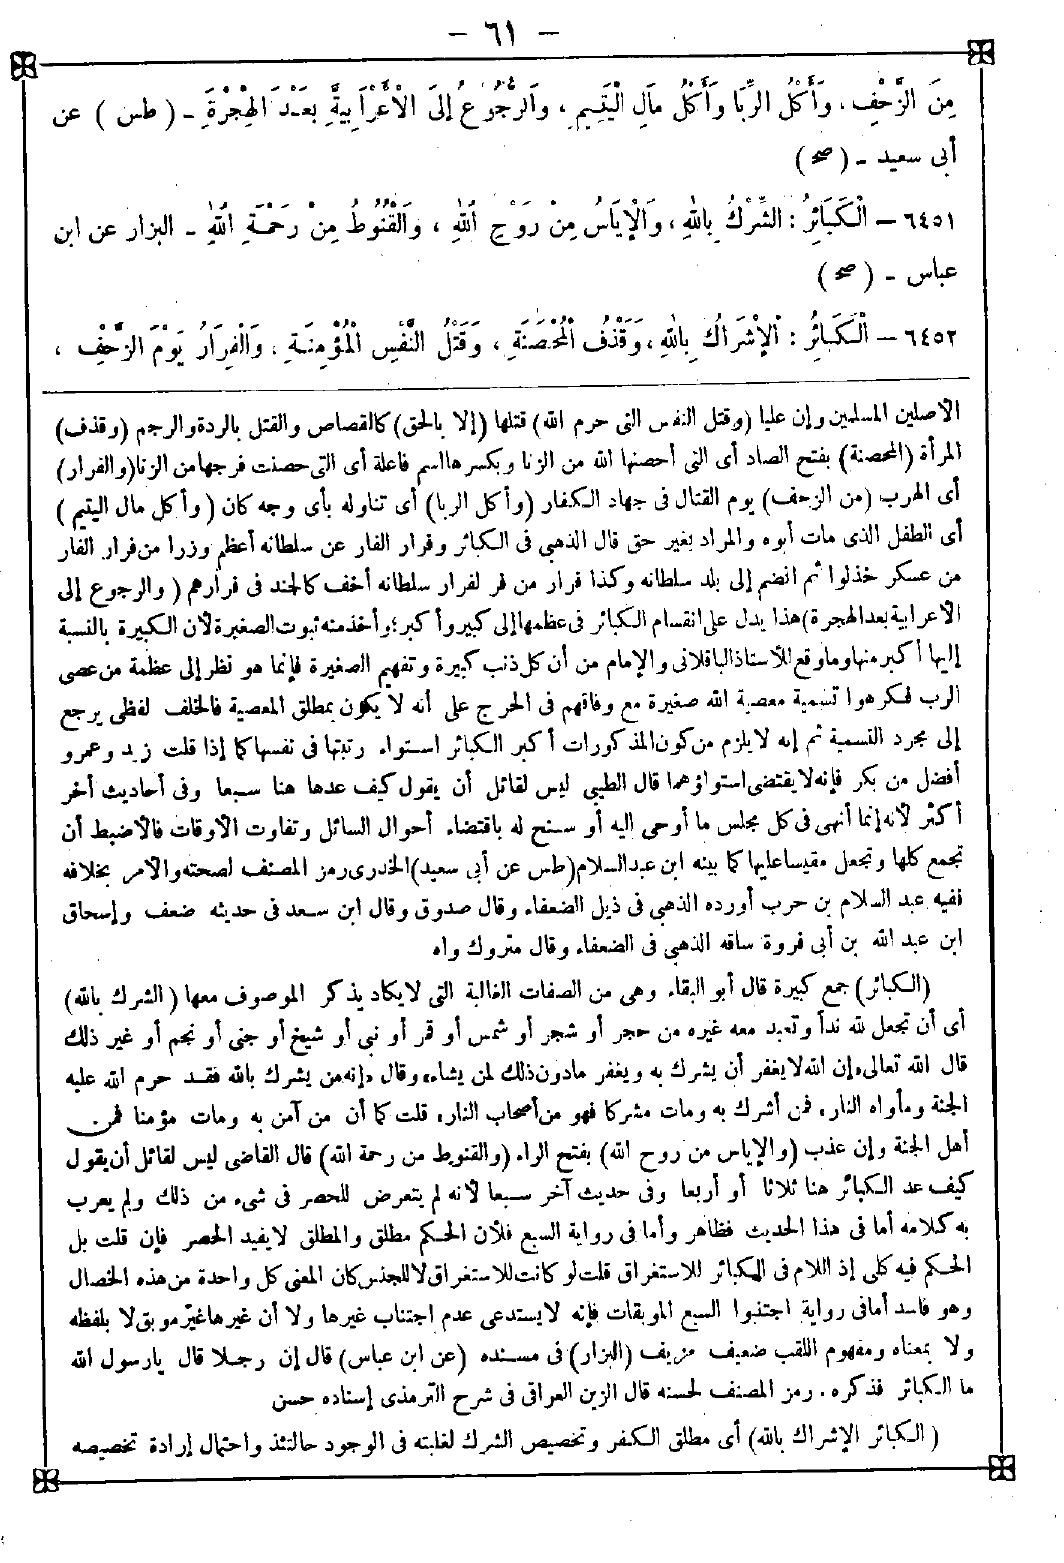 - ٦١ -
مِنَ الزَّحْفِ، وَأَكْلُ الرِّبَا وَأَكْلُ مَالِ الْيَتِيمِ، وَالرُّجُوعُ إِلَى الْأَعْرَابِيَّةِ بَعْدَ الْهِجْرَةِ - ( طس ) عن
أبى سعيد - ( صح )
٦٤٥١ - الْكَبَائِرُ : الشِّرْكُ بِاللهِ ، وَالْإِيَاسُ مِنْ رَوْحِ اللهِ ، وَالْقُنُوطُ مِنْ رَحْمَةِ اللهِ - البزار عن ابن
عباس - ( صح )
٦٤٥٢ - الْكَبَائِرُ : الْإِشْرَاكُ بِاللهِ ، وَقَذْفُ الْمُحْصَنَةِ ، وَقَتْلُ النَّفْسِ الْمُؤْمِنَةِ ، وَالْفِرَارُ يَوْمَ الزَّحْفِ ،
الاصلين المسلمين وإن عليا (وقتل النفس التى حرم الله) قتلها (إلا بالحق) كالقصاص والقتل بالردة والرجم (وقذف)
المرأة (المحصنة) بفتح الصاد أى التى أحصنها الله من الزنا وبكسرها اسم فاعلة أى التى حصنت فرجها من الزنا (والفرار)
أى الهرب (من الزحف) يوم القتال فى جهاد الكفار (وأكل الربا) أى تناوله بأى وجه كان (وأكل مال اليتيم )
أى الطفل الذى مات أبوه والمراد بغير حق قال الذهبي فى الكبائر وفرار الفار عن سلطانه أعظم وزرا من فرار الفار
من عسكر خذلوا ثم انضم إلى بلد سلطانه وكذا فرار من فر لفرار سلطانه أخف كالجند فى فرارهم ( والرجوع إلى
الاعرابية بعد الهجرة) هذا يدل على انقسام الكبائر فى عظمها إلى كبير وأكبر؛ وأخذ منه ثبوت الصغيرة لأن الكبيرة بالنسبة
إليها أكبر منها وما وقع للأستاذ الباقلانى والإمام من أن كل ذنب كبيرة وتفهيم الصغيرة فإنما هو نظر إلى عظمة من عصى
الرب فكرهوا تسمية معصية الله صغيرة مع وفاقهم فى الجرح على أنه لا يكون بمطلق المعصية فالخلف لفظى يرجع
إلى مجرد التسمية ثم إنه لا يلزم من كون المذكورات أكبر الكبائر استواء رتبتها فى نفسها كما إذا قلت زيد وعمرو
أفضل من بكر فإنه لا يقتضى استواؤهما قال الطيبى ليس لقائل أن يقول كيف عدها هنا سبعا وفى أحاديث أخر
أكثر لأنه إنما أنهى فى كل مجلس ما أوحى اليه أو سنح له باقتضاء أحوال السائل وتفاوت الأوقات فالأضبط أن
تجمع كلها وتجعل مقيسا عليها كما بينه ابن عبد السلام (طس عن أبى سعيد) الخدرى رمز المصنف لصحته والأمر بخلافه
ففيه عبد السلام بن حرب أورده الذهبى فى ذيل الضعفاء وقال صدوق وقال ابن سعد فى حديثه ضعف وإسحاق
ابن عبد الله بن أبى فروة ساقه الذهبى فى الضعفاء وقال متروك واه
(الكبائر) جمع كبيرة قال أبو البقاء وهى من الصفات الغالبة التى لا يكاد يذكر الموصوف معها (الشرك بالله)
أى أن تجعل لله ندا وتعبد معه غيره من حجر أو شجر أو شمس أو قمر أو نبى أو شيخ أو جنى أو نجم أو غير ذلك
قال الله تعالى «إن الله لا يغفر أن يشرك به ويغفر مادون ذلك لمن يشاء» وقال «إنه من يشرك بالله فقد حرم الله عليه
الجنة ومأواه النار» فمن أشرك به ومات مشركا فهو من أصحاب النار، قلت كما أن من آمن به ومات مؤمنا فمن
أهل الجنة وإن عذب (والإياس من روح الله) بفتح الراء (والقنوط من رحمة الله) قال القاضى ليس لقائل أن يقول
كيف عد الكبائر هنا ثلاثا أو أربعا وفى حديث آخر سبعا لأنه لم يتعرض للحصر فى شىء من ذلك ولم يعرب
به كلامه أما فى هذا الحديث فظاهر وأما فى رواية السبع فلأن الحكم مطلق والمطلق لا يفيد الحصر فإن قلت بل
الحكم فيه كلى إذ اللام فى الكبائر للاستغراق قلت لو كانت للاستغراق لا للجنس كان المعنى كل واحدة من هذه الخصال
وهو فاسد أما فى رواية اجتنبوا السبع الموبقات فإنه لا يستدعى عدم اجتناب غيرها ولا أن غيرها غير موبق لا بلفظه
ولا بمعناه ومفهوم اللقب ضعيف مزيف (البزار) فى مسنده (عن ابن عباس) قال إن رجلا قال يارسول الله
ما الكبائر فذكره . رمز المصنف لحسنه قال الزين العراقى فى شرح الترمذى إسناده حسن
( الكبائر الإشراك بالله) أى مطلق الكفر وتخصيص الشرك لغلبته فى الوجود حالتئذ واحتمال إرادة تخصيصه